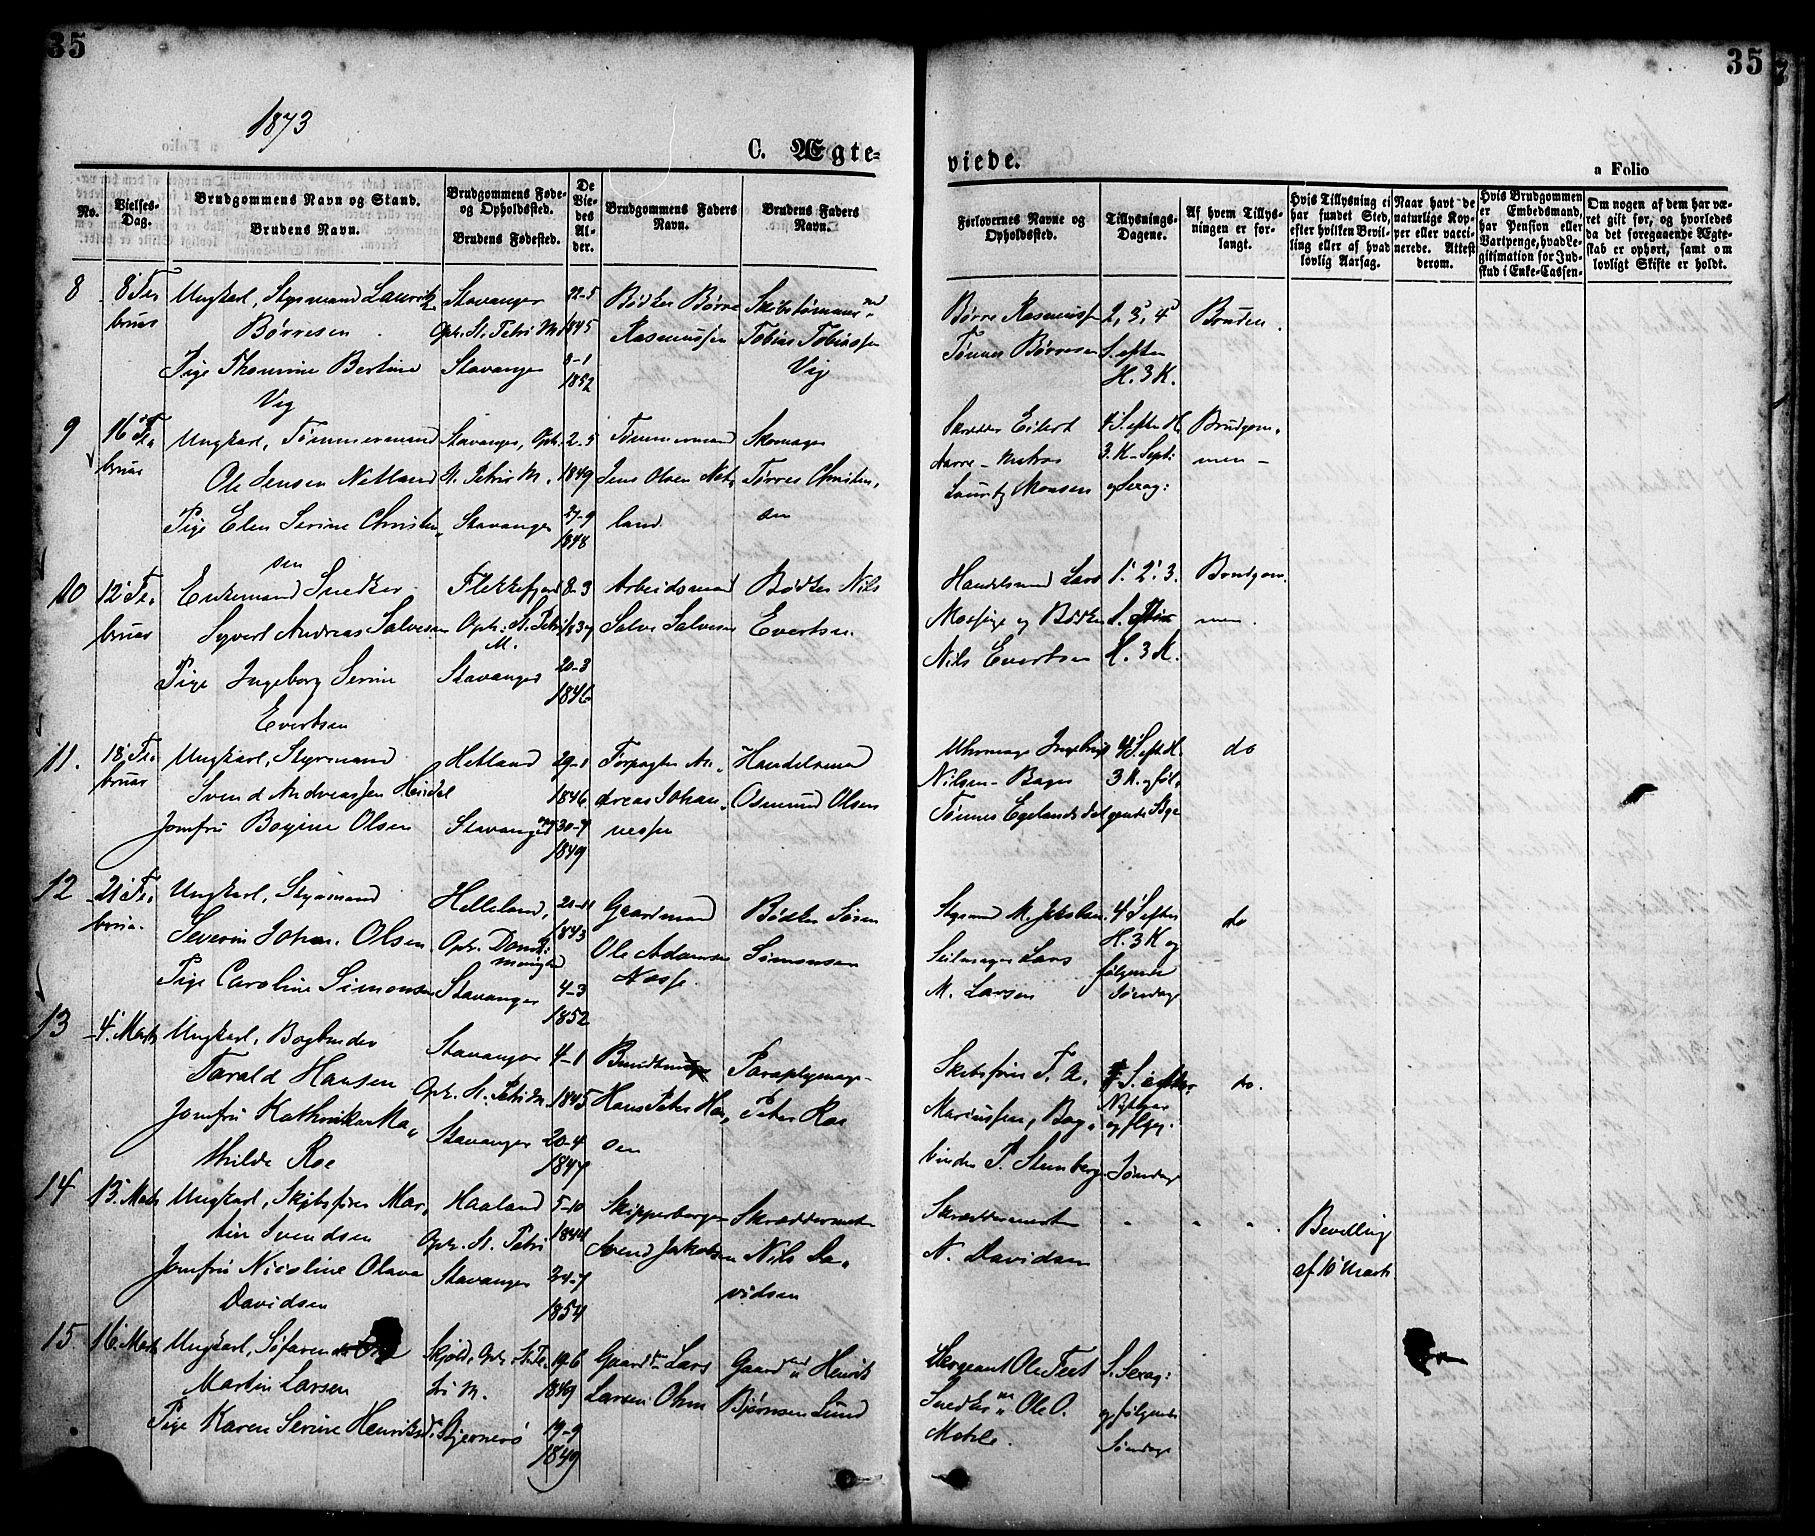 35
35
1873
C. Ægte-
viede.
a Folio
No.
Vielses-Dag.
Brudgommens Navn og Stand.
Brudens Navn.
Brudgommens Føde- og Opholdssted.
Brudens Fødested.
De Viedes Alder.
Brudgommens Faders Navn.
Brudens Faders Navn.
Forlovernes Navne og Opholdssted.
Tillysnings-Dagene.
Af hvem Tillysningen er forlangt.
Hvis Tillysning ei har fundet Sted, efter hvilken Bevilling eller af hvad lovlig Aarsag.
Naar havt de naturlige Kopper eller vaccinerede. Attest derom.
Hvis Brudgommen er Embedsmand, har Pension eller Vartpenge, hvad Legitimation for Indskud i Enke-Cassen.
Om nogen af dem har været gift før, og hvorledes da det foregaaende Ægteskab er ophørt, samt om lovligt Skifte er holdt.
8 8 Feb Ungkarl, Styrmand Lauritz Stavanger 22-5 Bødker Børre Skibstømmermd
bruar Børresen Oph. St. Petri M. 1845 Rasmussen Tobias Tobiassen
Pige Thomine Bertine Stavanger 8-1 Vig
Vig 1852
Børre Rasmussen 2, 3, 4 Bruden.
Tønnes Børresen S. efter
H. 3 K.
9 16 Fe- Ungkarl, Tømmermand Stavanger, Oph. 2-5 Tømmermand Skomager
bruar Ole Jensen Netland St. Petri M. 1849 Jens Olsen Net- Tørres Christen-
Pige Elen Serine Christen- Stavanger 27-9 land. sen
sen 1848
Skrædder Eilert 1 S. efter H. Brudgom-
Aarre - Matros 3. K - Septi: men -
Lauritz Monsen og Sexag:
10 12 Fe- Enkemand Snedker Flekkefjord 8-3 Arbeidsmand Bødker Nils
bruar Syvert Andreas Salvesen Oph. St. Petri M. 1837 Salve Salvesen Evertsen.
Pige Ingeborg Serine Stavanger 20-3
Evertsen 1846
Handelsmand Lars 1. 2. 3. Brudgom-
Mossige og Bødker S. efter men.
Nils Evertsen H. 3 K.
11. 18 Fe- Ungkarl, Styrmand Hetland 29-1 Forpagter An- Handelsmand
bruar Svend Andreassen Heidal 1846 dreas Johan- Osmund Olsen
Jomfru Bogine Olsen Stavanger 30-7 nessen
1849
Uhrmager Ingebrigt 4 S. eft. H. do
Nilsen - Bager 3 K. og føl-
Tønnes Egelandsdal gende Sdge
12 21 Fe- Ungkarl, Styrmand Helleland, 20-11 Gaardmand Bødker Søren
bruar. Severin Johan Olsen Oph. Domk: menighed 1843 Ole Adamsen Simonsen
Pige Caroline Simonsen Stavanger 4-3 Næsse.
1852
Styrmd M. Jakobsen 4 S. efter do
Seilmager Lars H. 3 K og
M. Larsen følgende
Søndage
13 4. Marts Ungkarl, Bogbinder Stavanger 4-1 Paraplymager
Tarald Hansen Oph. St. Petri M. 1845 Hans Peter Han- Peter Roe
Jomfru Kathrinka Ma- Stavanger 20-4 sen
thilde Roe 1847
Skibsfører T. A. S. efter do.
Mariussen, Bog- Nytaar
binder P. Stenberg og flgg. Søndage
14 13. Marts Ungkarl, Skibsfører Mar- Haaland 5-10 Skipperborger Skræddermester
tin Svendsen Oph. St. Petri 1844 Svend Jakobsen Nils Da-
Jomfru Nicoline Olava Stavanger 24-7 vidsen
Davidsen 1854
Skræddermester " " " Bevilling
N. Davidsen af 10 Marts
15. 16 Marts Ungkarl, Søfarende Skjold, Oph. St. Pe- 19-6 Gaardm. Lars Gaardmd Henrik
Martin Larsen tri M. 1849 Larsen Bjørnsen Lund
Pige Karen Serine Henriksd. Stjernerø 19-9
1849
Sergeant Ole Feet S. Sexag:
Snedkerm. Ole O. og følgende
Søndage